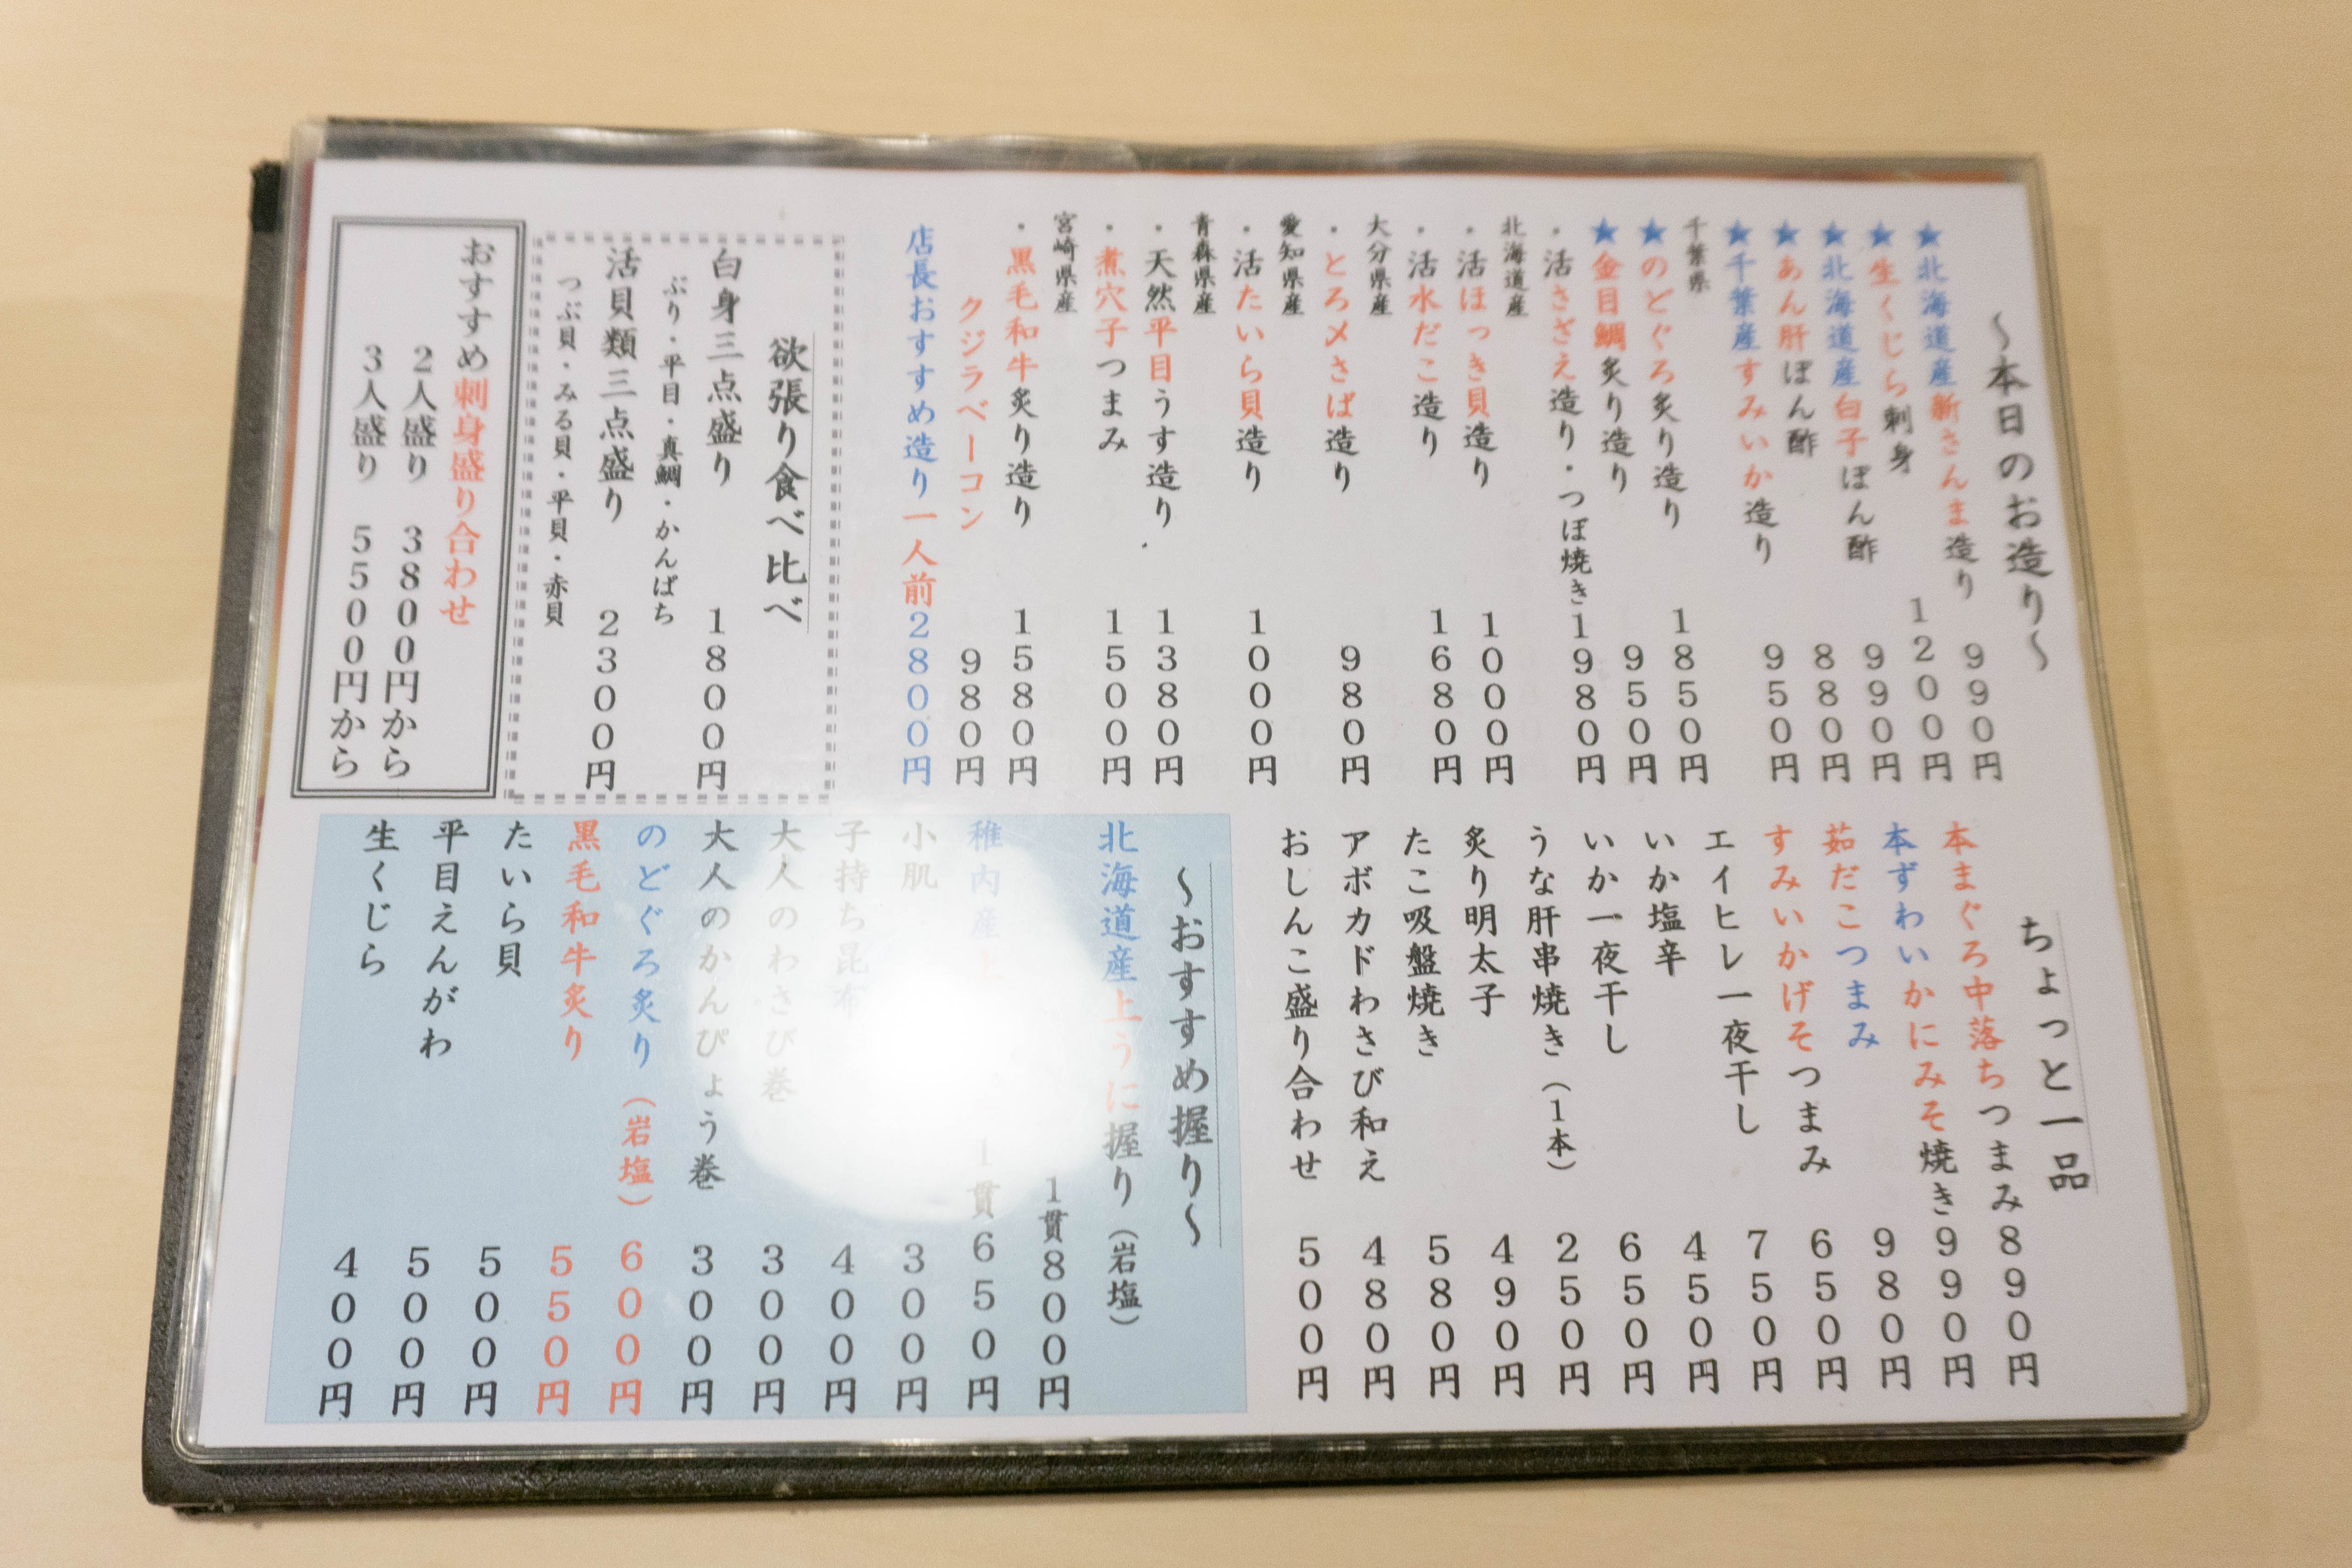 ～本日のお造り～
★北海道産新さんま造り 990円
★生くじら刺身 1200円
★北海道産白子ぽん酢 990円
★あん肝ぽん酢 880円
★千葉産すみいか造り 950円
千葉県
★のどぐろ炙り造り 1850円
★金目鯛炙り造り 950円
・活さざえ造り・つぼ焼き 1980円
北海道産
・活ほっき貝造り 1000円
・活水だこ造り 1680円
大分県産
・とろ〆さば造り 980円
愛知県産
・活たいら貝造り 1000円
青森県産
・天然平目うす造り 1380円
・煮穴子つまみ 1500円
宮崎県産
・黒毛和牛炙り造り 1580円
クジラベーコン 980円
店長おすすめ造り一人前 2800円
欲張り食べ比べ
白身三点盛り 1800円
ぶり・平目・真鯛・かんぱち
活貝類三点盛り 2300円
つぶ貝・みる貝・平貝・赤貝
おすすめ刺身盛り合わせ
2人盛り 3800円から
3人盛り 5500円から
ちょっと一品
本まぐろ中落ちつまみ 890円
本ずわいかにみそ焼き 990円
茹だこつまみ 980円
すみいかげそつまみ 650円
エイヒレ一夜干し 750円
いか塩辛 450円
いか一夜干し 650円
うな肝串焼き（1本） 250円
炙り明太子 490円
たこ吸盤焼き 580円
アボカドわさび和え 480円
おしんこ盛り合わせ 500円
～おすすめ握り～
北海道産上うに握り（岩塩）
1貫 800円
稚内産 1貫 650円
小肌 300円
子持ち昆布 400円
大人のわさび巻 300円
大人のかんぴょう巻 300円
のどぐろ炙り（岩塩） 600円
黒毛和牛炙り 550円
たいら貝 500円
平目えんがわ 500円
生くじら 400円